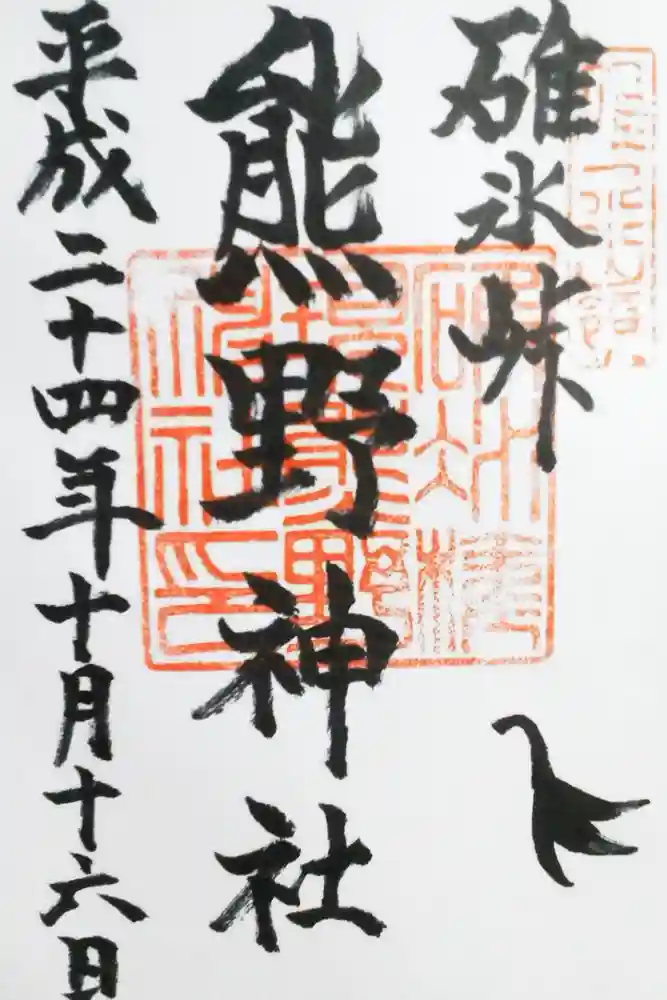 碓氷峠
熊野神社
平成二十四年十月十六日